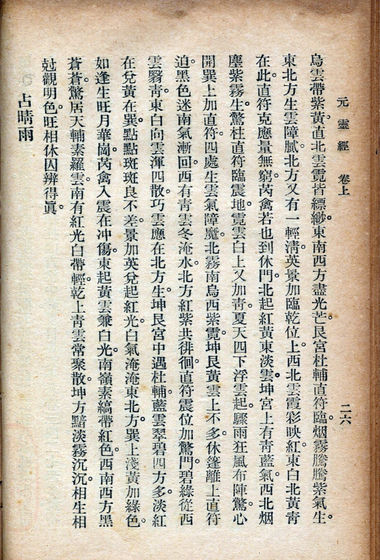 元靈經 卷上 二六
烏雲帶紫。黃直北雲霓皆縹緲。東南西方盡光芒。艮宮杜輔直符臨。烟霧騰騰紫氣生。
東北方生雲障膩。北方又有一輕清。英景加臨乾位上。西北雲霞彩映紅。東白北黃青
在此。直符克應量無窮。芮禽若也到休門。北起紅黃東淡雲。坤宮上有青藍氣。西北烟
塵紫霧生。驚柱直符臨震地。霓雲白上又加青。夏天四下浮雲起。驟雨狂風布陣驚。心
開巽上加直符。四處生雲氣障魔。北霧南烏西紫霓。坤艮黃雲上不多。休蓬離上直符
迫。黑色迷南氣漸回。西有青雲冬淹水。北方紅紫共徘徊。直符震位加驚門。碧綠從西
雲翳青。東白向雲渾四散。巧雲應在北方生。坤艮宮中遇杜輔。藍雲翠碧四方多。淡紅
在兌黃在巽。點點斑斑良不差。景加英兌起紅光。白氣淹淹東北方。巽上淺黃加綠色。
如逢生旺月華崗。芮禽入震在冲傷。東起黃雲兼白光。南嶺素縞帶紅色。西南西方黑
蒼蒼。驚居天輔素羅雲。南有紅光白帶輕。乾上青雲常聚散。坤方黯淡霧沉沉。相生相
尅觀明色。旺相休囚辨得眞。
占晴雨